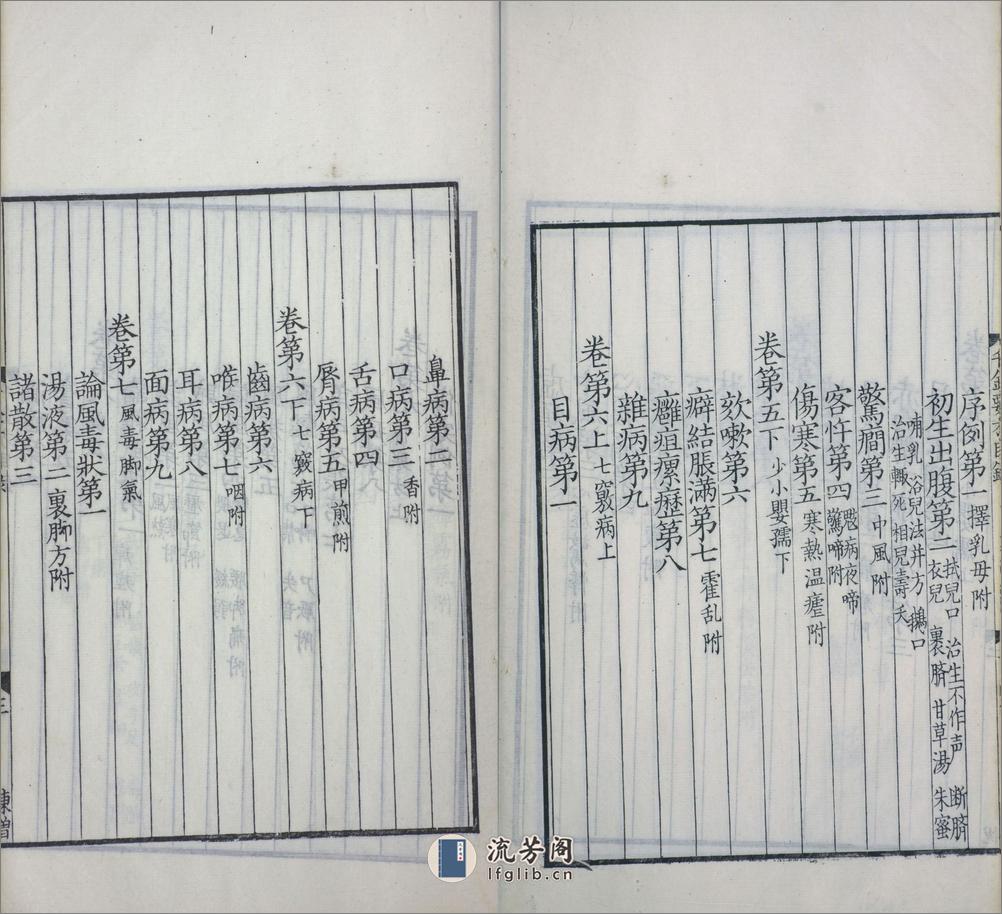 序例第一 擇乳母附
初生出腹第二 拭兒口 治生不作声 断臍
衣兒 裹臍 甘草湯 朱蜜
哺乳 浴兒法并方 鵝口
治生輙死 相兒壽夭
驚癇第三 中風附
客忤第四 鬾病夜啼
驚啼附
傷寒第五 寒熱温瘧附
卷第五下 少小嬰孺下
欬嗽第六
癖結脹滿第七 霍乱附
癰疽瘰癧第八
雜病第九
卷第六上 七竅病上
目病第一
鼻病第二
口病第三 香附
舌病第四
脣病第五 甲煎附
卷第六下 七竅病下
齒病第六
喉病第七 咽附
耳病第八
面病第九
卷第七 風毒脚氣
論風毒狀第一
湯液第二 裹脚方附
諸散第三
三
流芳阁
lfglib.cn